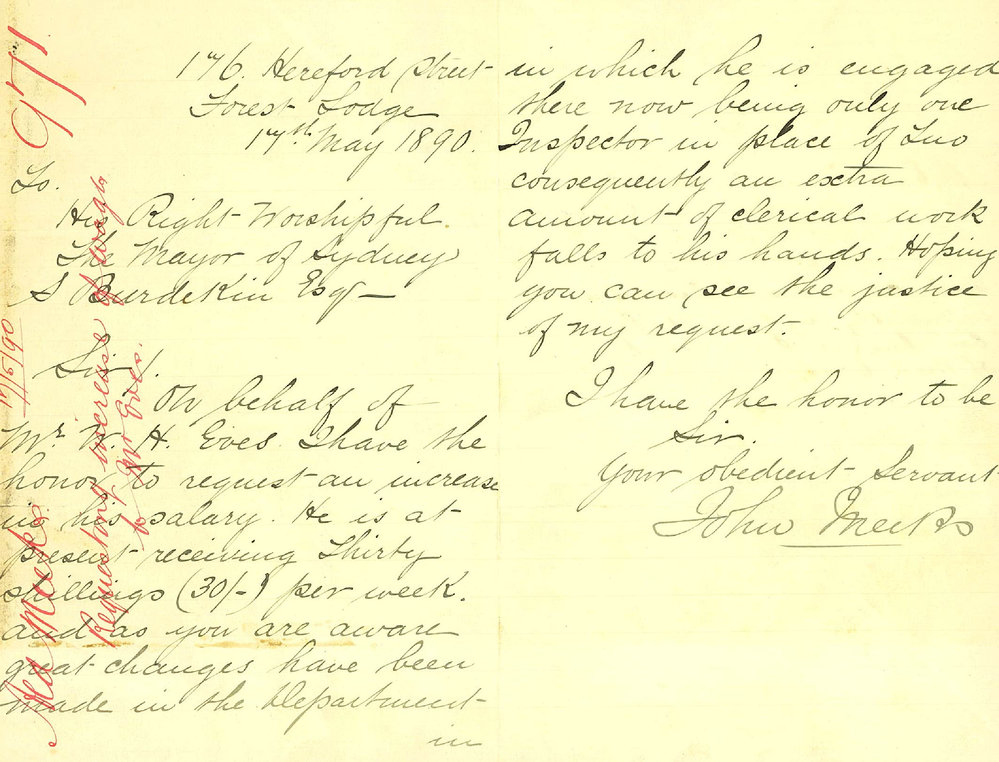 176. Hereford Street
Forest Lodge
17th May 1890.
To.
His Right Worshipful
The Mayor of Sydney
S Burdekin Esqr
Sir/
On behalf of
Mr W. H. Eves I have the
honor to request an increase
in his salary. He is at
present receiving Thirty
shillings (30/-) per week.
and as you are aware
great changes have been
made in the Department
in
in which he is engaged
there now being only one
Inspector in place of Two
consequently an extra
amount of clerical work
falls to his hands. Hoping
you can see the justice
of my request.
I have the honor to be
Sir.
Your obedient Servant
John Meeks
971
19/5/90
Meeks
Requesting increase of wages
to Mr Eves.